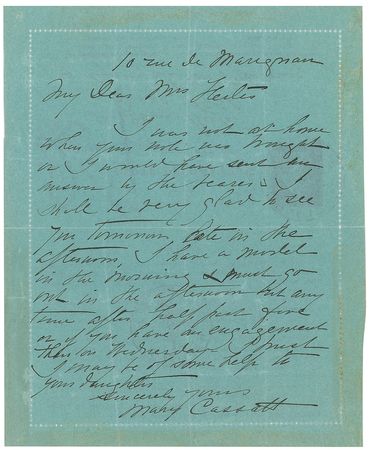 10 rue de Marignan
My Dear Mrs
I was not at home
when your note was brought
or I would have sent an
answer by the bearer. I
shall be very glad to see
you tomorrow, late in the
afternoon, I have a model
in the morning & must go
out in the afternoon but any
time after half past five
or if you have an engagement
then on Wednesday. I trust
I may be of some help to
your daughter
Sincerely yours
Mary Cassatt